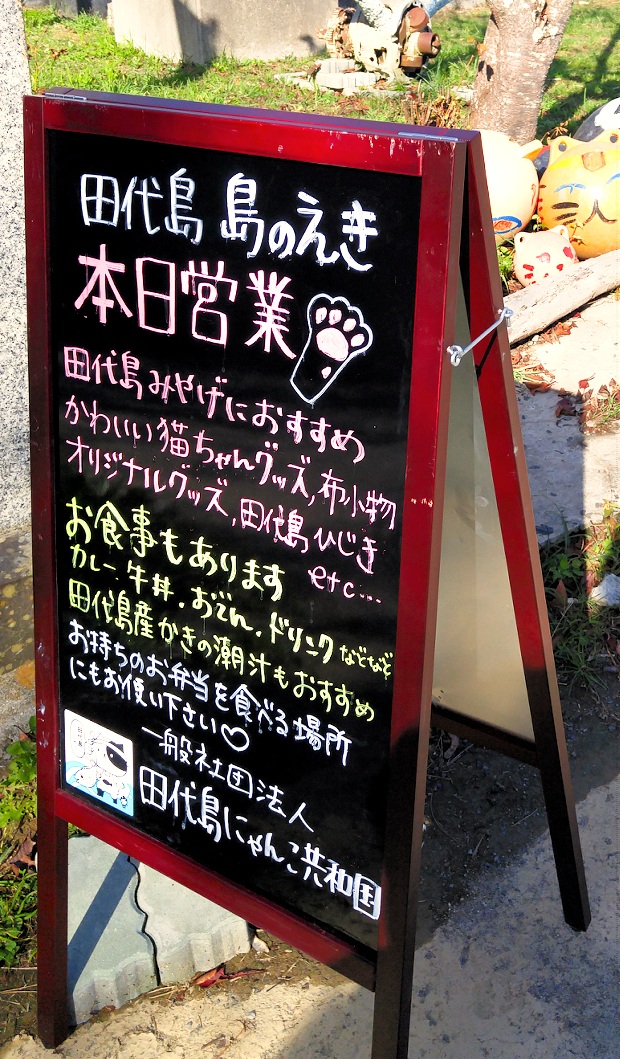 田代島 島のえき
本日営業
田代島みやげにおすすめ
かわいい猫ちゃんグッズ,布小物
オリジナルグッズ,田代島ひじき
etc...
お食事もあります
カレー.牛丼.おでん.ドリンクなどなど
田代島産かきの潮汁もおすすめ
お持ちのお弁当を食べる場所
にもお使い下さい♡
一般社団法人
田代島にゃんこ共和国